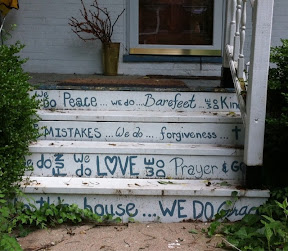 We do Peace ... we do ... Barefeet ... we do
MISTAKES ... We do ... forgiveness ...
We do We do LOVE WE DO Prayer &
this house ... WE DO Grace